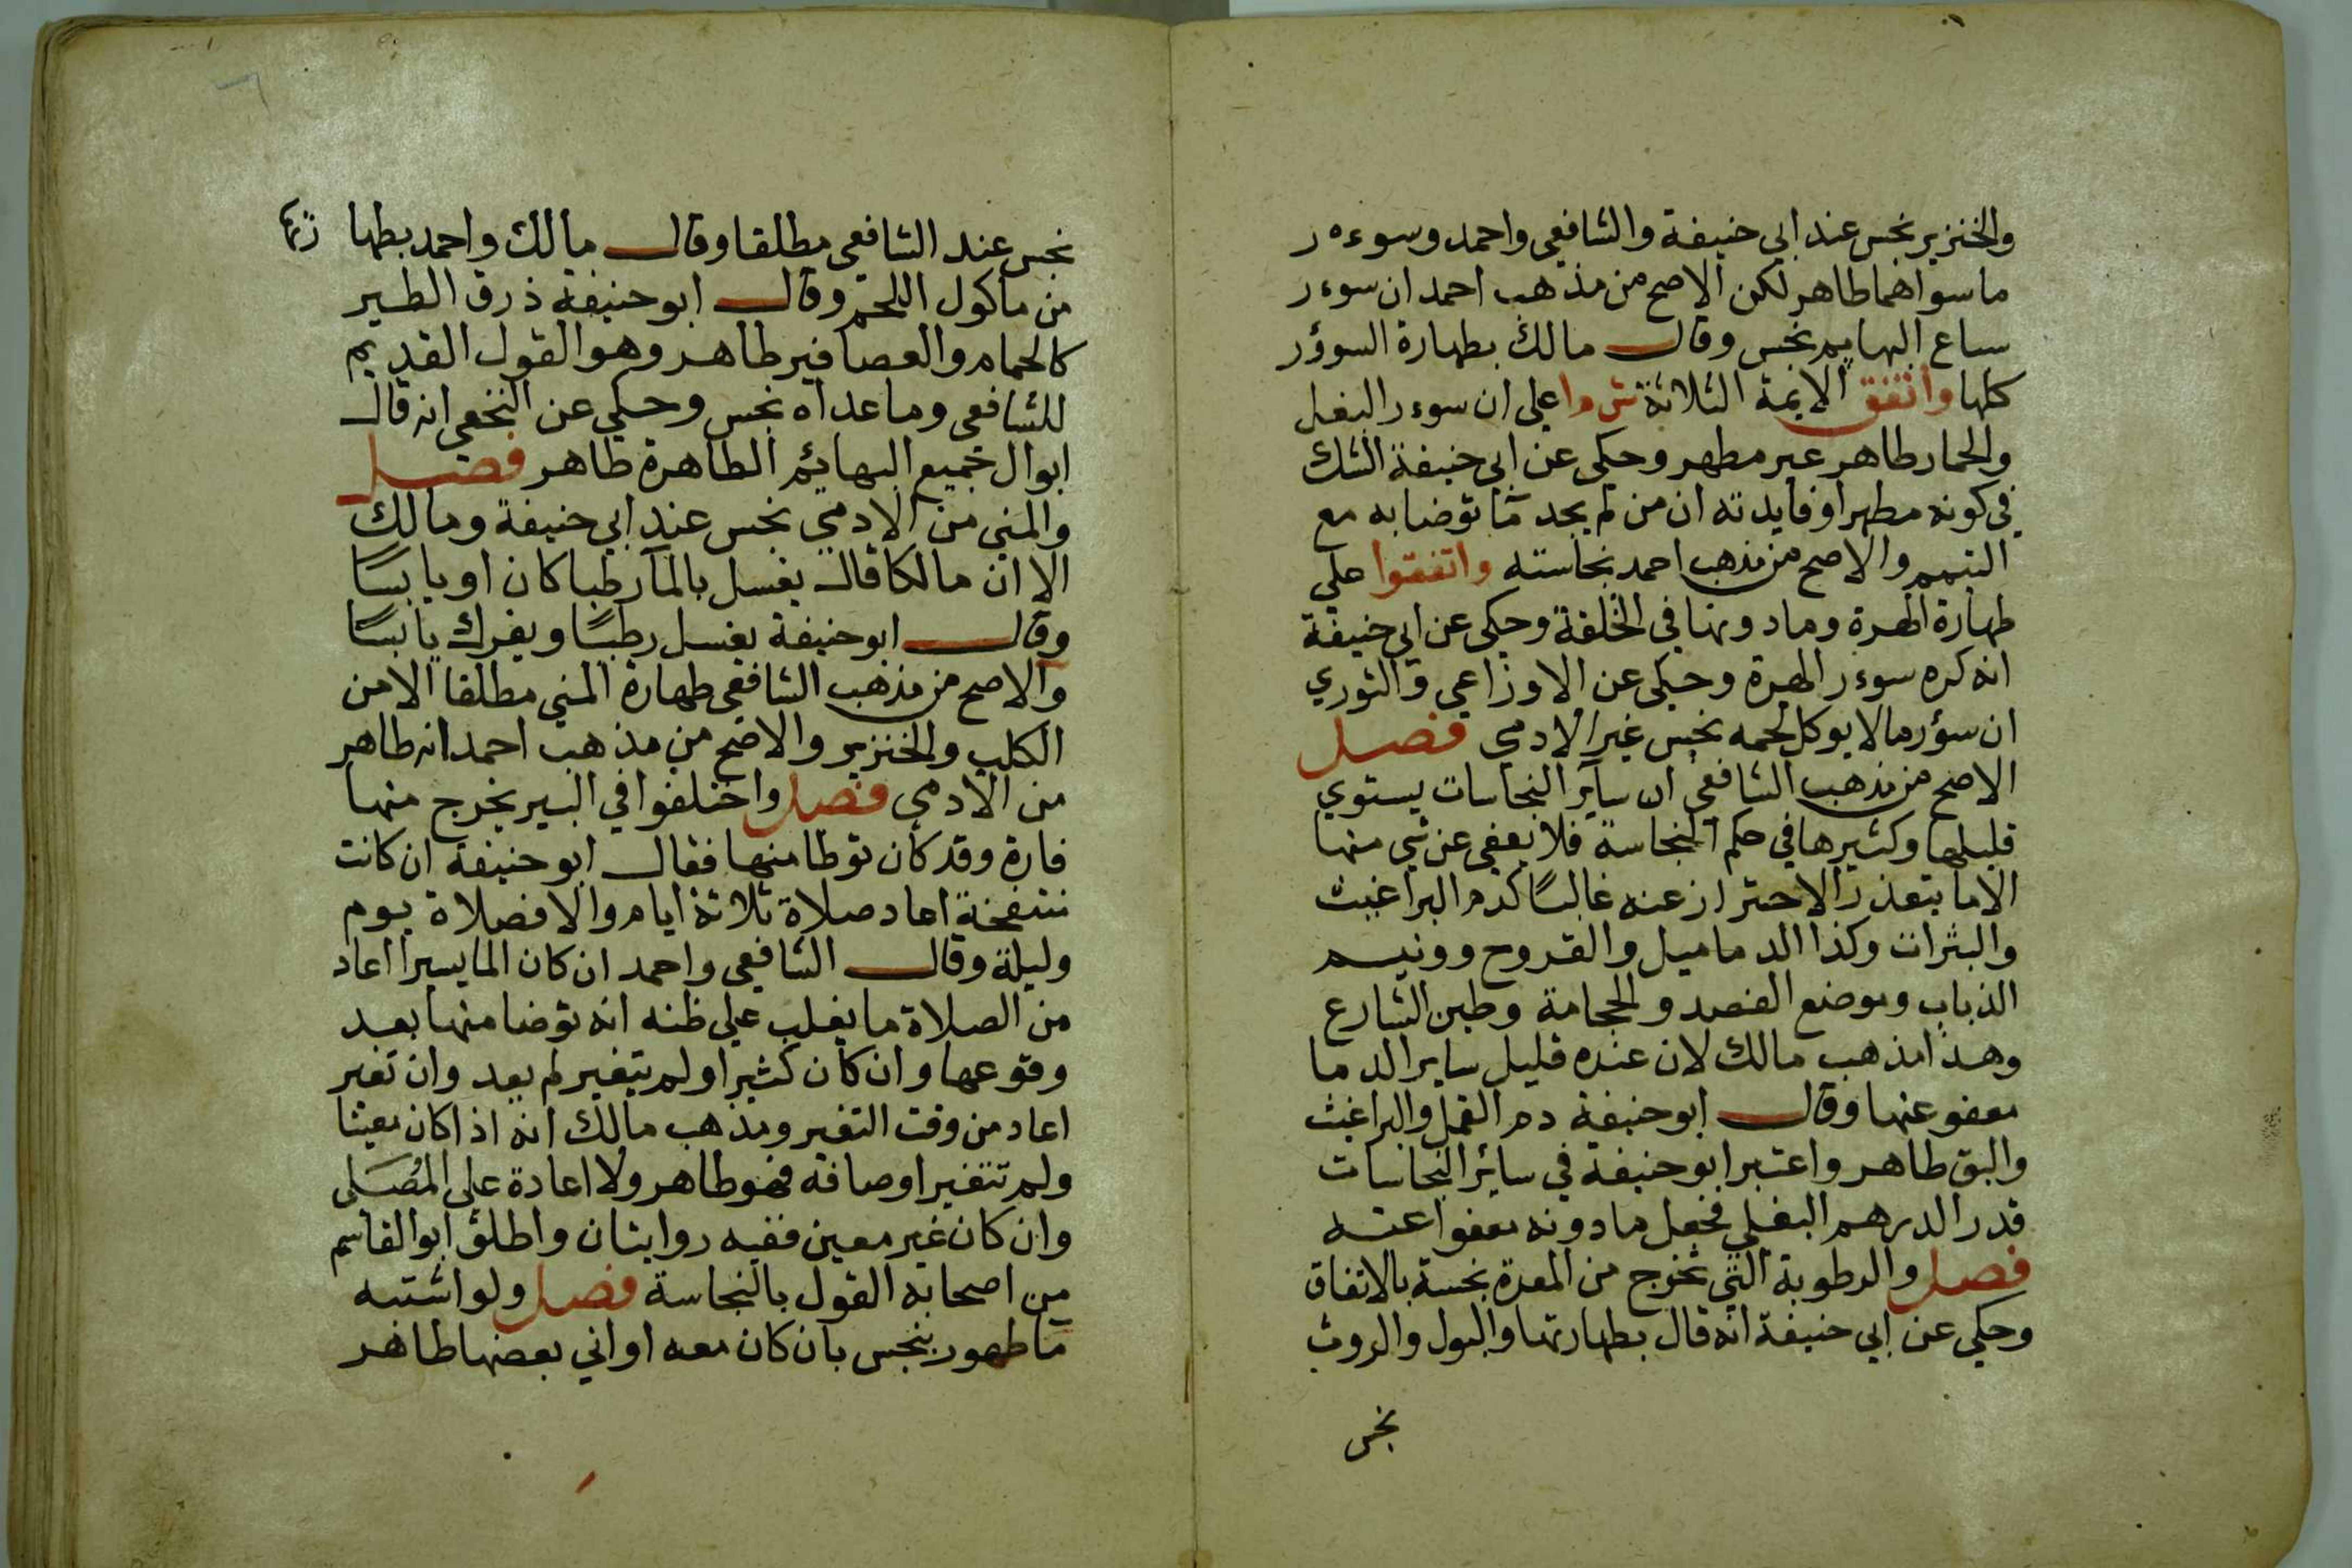 والخنزير نجس عند ابي حنيفة والشافعي واحمد وسوءه ر
ما سواهما طاهر لكن الاصح من مذهب احمد ان سوءر
سباع البهايم نجس وقال مالك بطهارة السوؤر
كلها واتفق الايمة الثلاثة ش م ا على ان سوءر البغل
والحمار طاهر غير مطهر وحكي عن ابي حنيفة الشك
في كونه مطهرا وفايدته ان من لم يجد ما توضا به مع
التيمم والاصح من مذهب احمد نجاسته واتفقوا على
طهارة الهرة وما دونها في الخلقة وحكى عن ابي حنيفة
انه كره سوءر الهرة وحكى عن الاوزاعي والثوري
ان سؤر مالا يوكل لحمه نجس غير الادمي فصل
الاصح من مذهب الشافعي ان ساير النجاسات يستوي
قليلها وكثيرها في حكم النجاسة فلا يعفى عن شي منها
الا ما يتعذر الاحتراز عنه غالبًا كدم البراغيث
والبثرات وكذا الدماميل والقروح وونيم
الذباب وموضع الفصد والحجامة وطين الشارع
وهذا مذهب مالك لان عنده قليل ساير الدما
معفو عنها وقال ابو حنيفة دم القمل والبراغث
والبق طاهر واعتبر ابو حنيفة في سائر النجاسات
قدر الدرهم البغلي فجعل ما دونه معفوا عنه
فصل والرطوبة التي تخرج من المعدة نجسة بالاتفاق
وحكي عن ابي حنيفة انه قال بطهارتها والبول والروث
نجس
نجس عند الشافعي مطلقا وقال مالك واحمد بطها رتها
من ماكول اللحم وقال ابو حنيفة ذرق الطير
كالحمام والعصافير طاهر وهو القول القديم
للشافعي وما عداه نجس وحكي عن النخعي انه قال
ابوال جميع البهائم الطاهرة طاهر فصل
والمني من الادمي نجس عند ابي حنيفة ومالك
الا ان مالكا قال يغسل بالمآ رطبا كان او يابسًا
وقال ابو حنيفة يغسل رطبًا ويفرك يابسًا
والاصح من مذهب الشافعي طهارة المني مطلقا الا من
الكلب والخنزير والاصح من مذهب احمد انه طاهر
من الادمي فصل واختلفوا في البير يخرج منها
فارة وقد كان توطا منها فقال ابو حنيفة ان كانت
منتفخة اعاد صلاة ثلاثة ايام والا فصلاة يوم
وليلة وقال الشافعي واحمد ان كان الما يسيرا اعاد
من الصلاة ما يغلب على ظنه انه توضا منها بعد
وقوعها وان كان كثيرا ولم يتغير لم يعد وان تغير
اعاد من وقت التغير ومذهب مالك انه اذا كان معينا
ولم تتغير اوصافه فهو طاهر ولا اعادة على المُصَلى
وان كان غير معين ففيه روايتان واطلق ابو القاسم
من اصحابه القول بالنجاسة فصل ولو اشتبه
ما طهور بنجس بان كان معه اواني بعضها طاهر